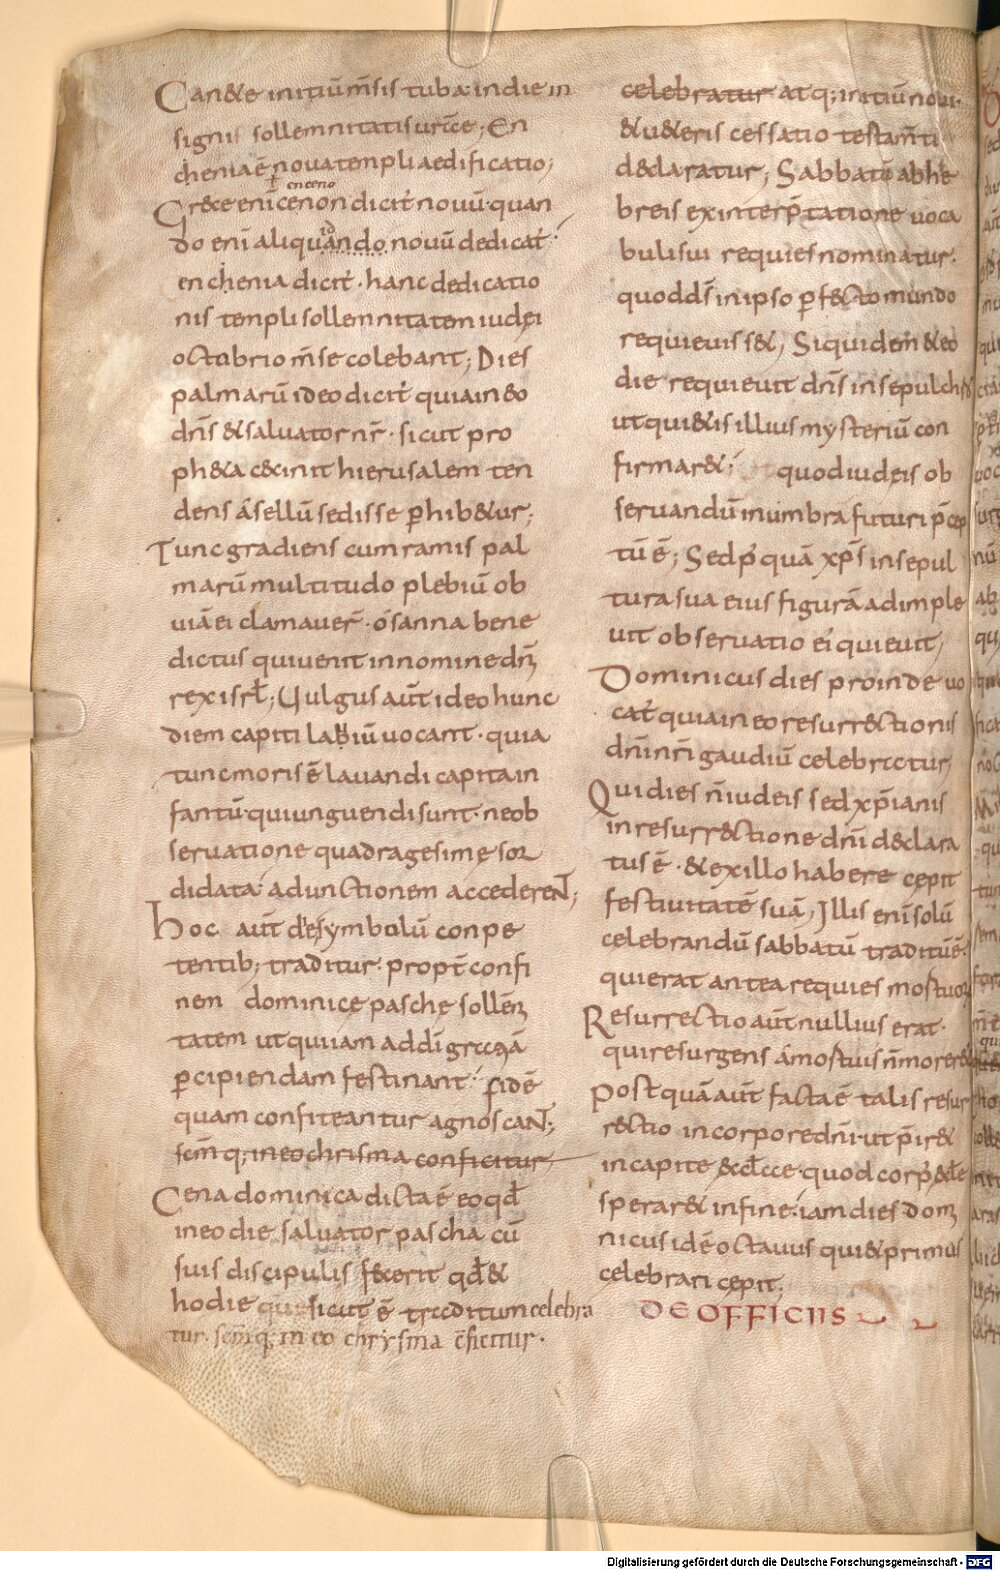 Can&e initiū m̄sis tuba· in die in
signis sollemnitatis ur̄ce; En
chenia ē noua templi aedificatio;
encenio
Gr&ce eni cenon dicit́ nouū· quan
do eni aliquando nouū dedicat́·
enchenia dicit́· hanc dedicatio
nis templi sollemnitatem iudęi
octobrio m̄se colebant; Dies
palmarū ideo dicit́ quia in eo
dn̄s & saluator nr̄· sicut pro
ph&a c&cinit hierusalem ten
dens ásellū sedisse ꝑhib&ur;
Tunc gradiens cum ramis pal
marū multitudo plebiū ob
uiā ei clamauer̄· ósanna bene
dictus qui uenit in nomine dn̄i
rex isrł; Uulgus aūt ideo hunc
diem capitilabiū uocant· quia
tunc moris ē lauandi capita in
fantū· qui unguendi sunt· ne ob
seruatione quadragesime sor
didata· ad unctionem accederent;
Hoc aūt die symbolū conpe
tentib; traditur· propt̄ confi
nem dominice pasche sollēni
tatem ut qui iam ad dī gratiā
ꝑcipiendam festinant· fidē
quam confiteantur agnoscant;
scm̄q; in eo chrisma conficitur
Cena dominica dicta ē eo qd̄
in eo die saluator pascha cū
suis discipulis fecerit qd̄ &
hodie sicut ē traditum celebra
tur· scm̄q; in eo chrysma c̄ficitur·
celebratur atq; initiū noui·
& u&eris cessatio testam̄ti
d&claratur; Sabbatū ab he
breis ex interp̄tatione uoca
buli sui requies nominatur·
quod ds̄ in ipso ꝑf&cto mundo
requieuiss&; Siquidem & eo
die requieuit dn̄s in sepulchro
ut qui&is illius mysteriū con
firmar&; quod iudęis ob
seruandū in umbra futuri p̄cep
tū ē; Sed pꝰquā xp̄s in sepul
tura sua eius figurā adimple
uit obseruatio ei quieuit;
Dominicus dies proinde uo
cat́ quia in eo resurr&ctionis
dn̄i nr̄i gaudiū celebratur;
Qui dies n̄ iudeis sed xp̄ianis
in resurr&ctione dn̄i d&clara
tus ē· & ex illo habere cepit
festiuitatē suā; Illis enī solū
celebrandū sabbatū traditū ē·
quia erat antea requies mortuorū
Resurrectio aūt nullius erat·
qui resurgens á mortuis n̄ morer&
Postquā aūt facta ē talis resur
r&ctio in corpore dn̄i· ut p̄ir&
in capite &cłcce· quod corpꝰ &cłe
sperar& in fine· iam dies domi
nicus id ē octauus qui & primus
celebrari cepit;
DE OFFICIIS
Digitalisierung gefördert durch die Deutsche Forschungsgemeinschaft - DFG